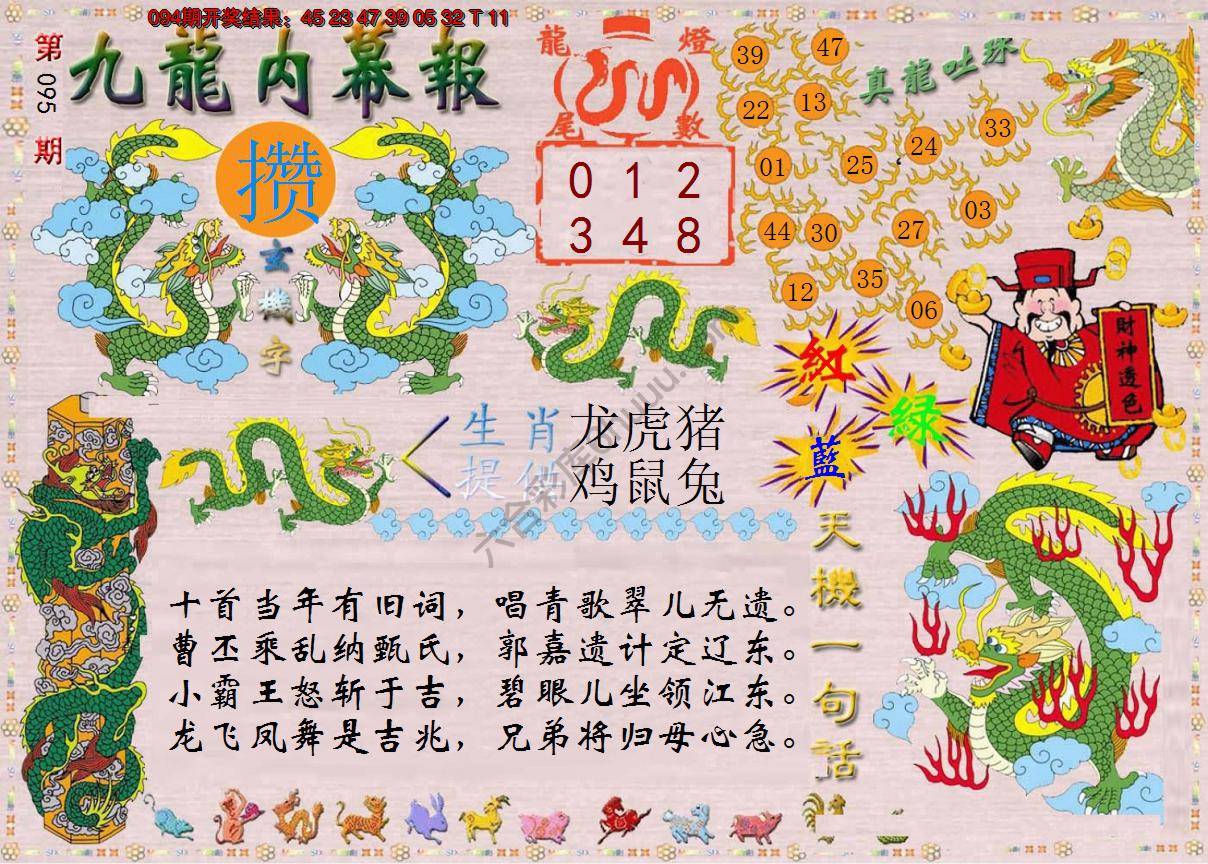 094期开奖结果：45 23 47 39 05 32 T 11
第
095
期
九龍内幕報
攒
玄
機
字
龍
燈
尾
數
0 1 2
3 4 8
真龍吐珠
39
47
22
13
33
24
01
25
03
44
30
27
35
12
06
財神透色
紅
綠
藍
生肖
提供
龙虎猪
鸡鼠兔
天機一句話
十首当年有旧词，唱青歌翠儿无遗。
曹丕乘乱纳甄氏，郭嘉遗计定辽东。
小霸王怒斩于吉，碧眼儿坐领江东。
龙飞凤舞是吉兆，兄弟将归母心急。